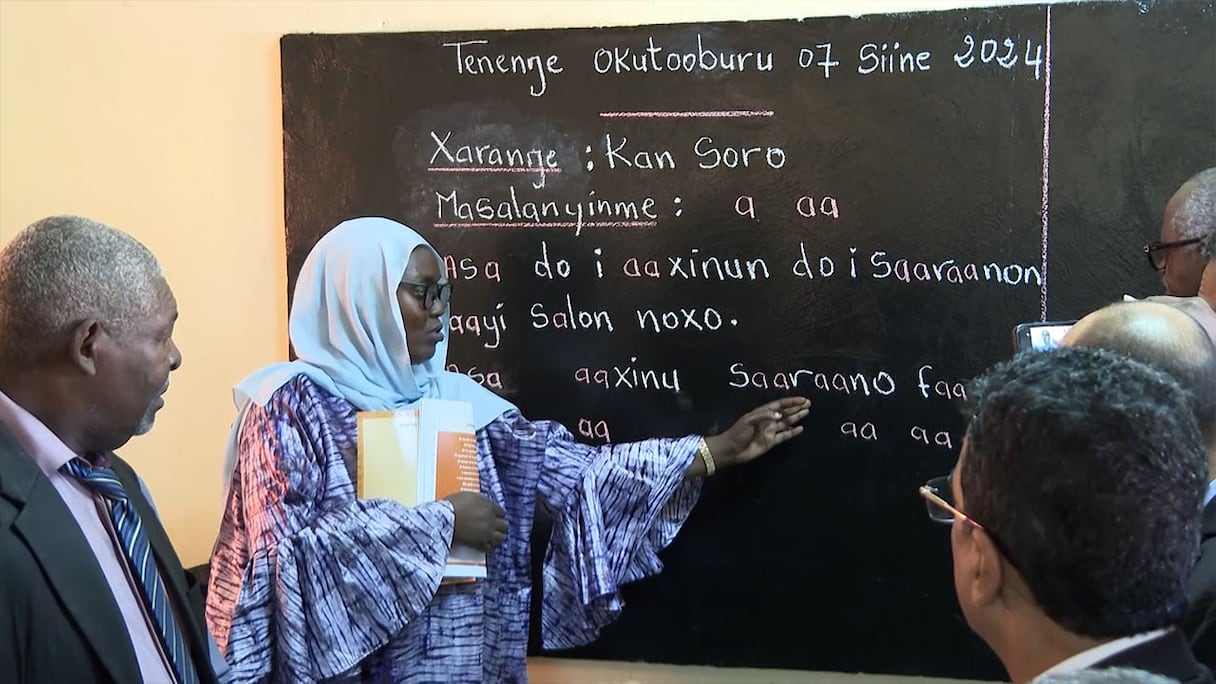 Tenenŋe Okutooburu 07 Siine 2024
Xaranŋe : Kan Soro
Masalanyinme : a aa
Asa do i aaxinun do i Saaraanon
aayi Salon noxo.
Asa aaxinu Saaraano faa
aa aa aa